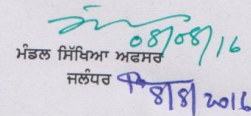 08/08/16
ਮੰਡਲ ਸਿੱਖਿਆ ਅਫਸਰ
ਜਲੰਧਰ
8/8/2016